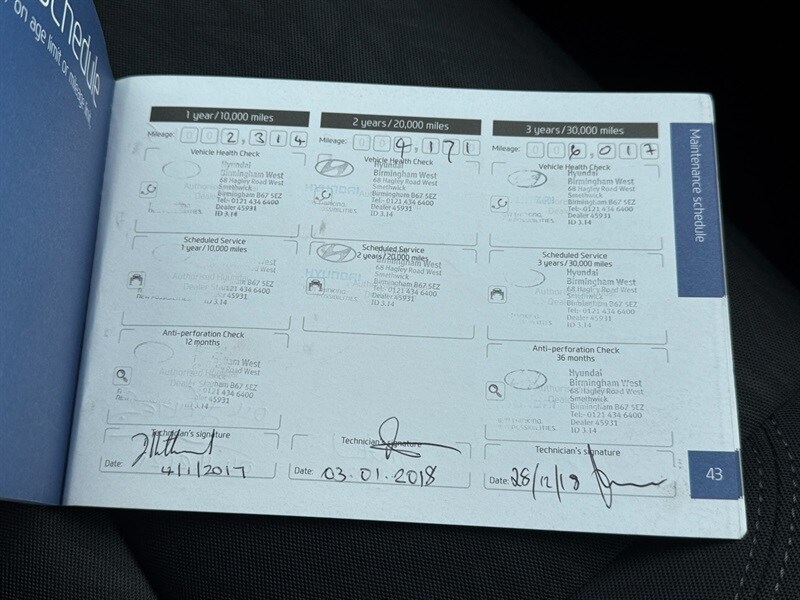 chedule
on age limit or mileage limit
1 year/10,000 miles
Mileage: 0 0 2, 3 1 4
Vehicle Health Check
Hyundai
Birmingham West
68 Hagley Road West
Smethwick
Birmingham B67 5EZ
Tel:- 0121 434 6400
Dealer 45931
ID 3.14
Scheduled Service
1 year/10,000 miles
West
West
434 6400
45931
3.14
Anti-perforation Check
12 months
West
Road West
B67 5EZ
0121 434 6400
45931
3.14
Technician's signature
Date: 4/1/2017
2 years/20,000 miles
Mileage: 0 0 4, 1 7 1
Vehicle Health Check
Hyundai
Birmingham West
68 Hagley Road West
Smethwick
Birmingham B67 5EZ
Tel:- 0121 434 6400
Dealer 45931
ID 3.14
Scheduled Service
2 years/20,000 miles
HYUNDAI
Birmingham West
68 Hagley Road West
Smethwick
Birmingham B67 5EZ
Tel:- 0121 434 6400
Dealer 45931
ID 3.14
Technician's signature
Date: 03.01.2018
3 years/30,000 miles
Mileage: 0 0 6, 0 1 7
Vehicle Health Check
Hyundai
Birmingham West
68 Hagley Road West
Smethwick
Birmingham B67 5EZ
Tel:- 0121 434 6400
Dealer 45931
ID 3.14
Scheduled Service
3 years/30,000 miles
Hyundai
Birmingham West
68 Hagley Road West
Smethwick
Birmingham B67 5EZ
Tel:- 0121 434 6400
Dealer 45931
ID 3.14
Anti-perforation Check
36 months
Hyundai
Birmingham West
68 Hagley Road West
Smethwick
Birmingham B67 5EZ
Tel:- 0121 434 6400
Dealer 45931
ID 3.14
Technician's signature
Date: 28/12/18
Maintenance schedule
43